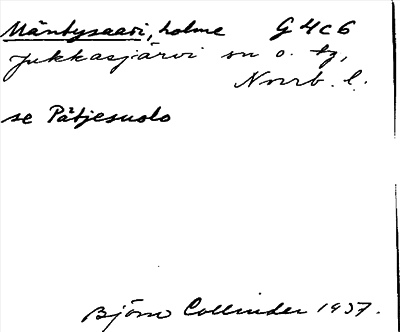 Mäntysaari, holme G 4 c 6
Jukkasjärvi sn o. tg,
Norrb. l.
se Påtjesuolo
Björn Collinder 1937.